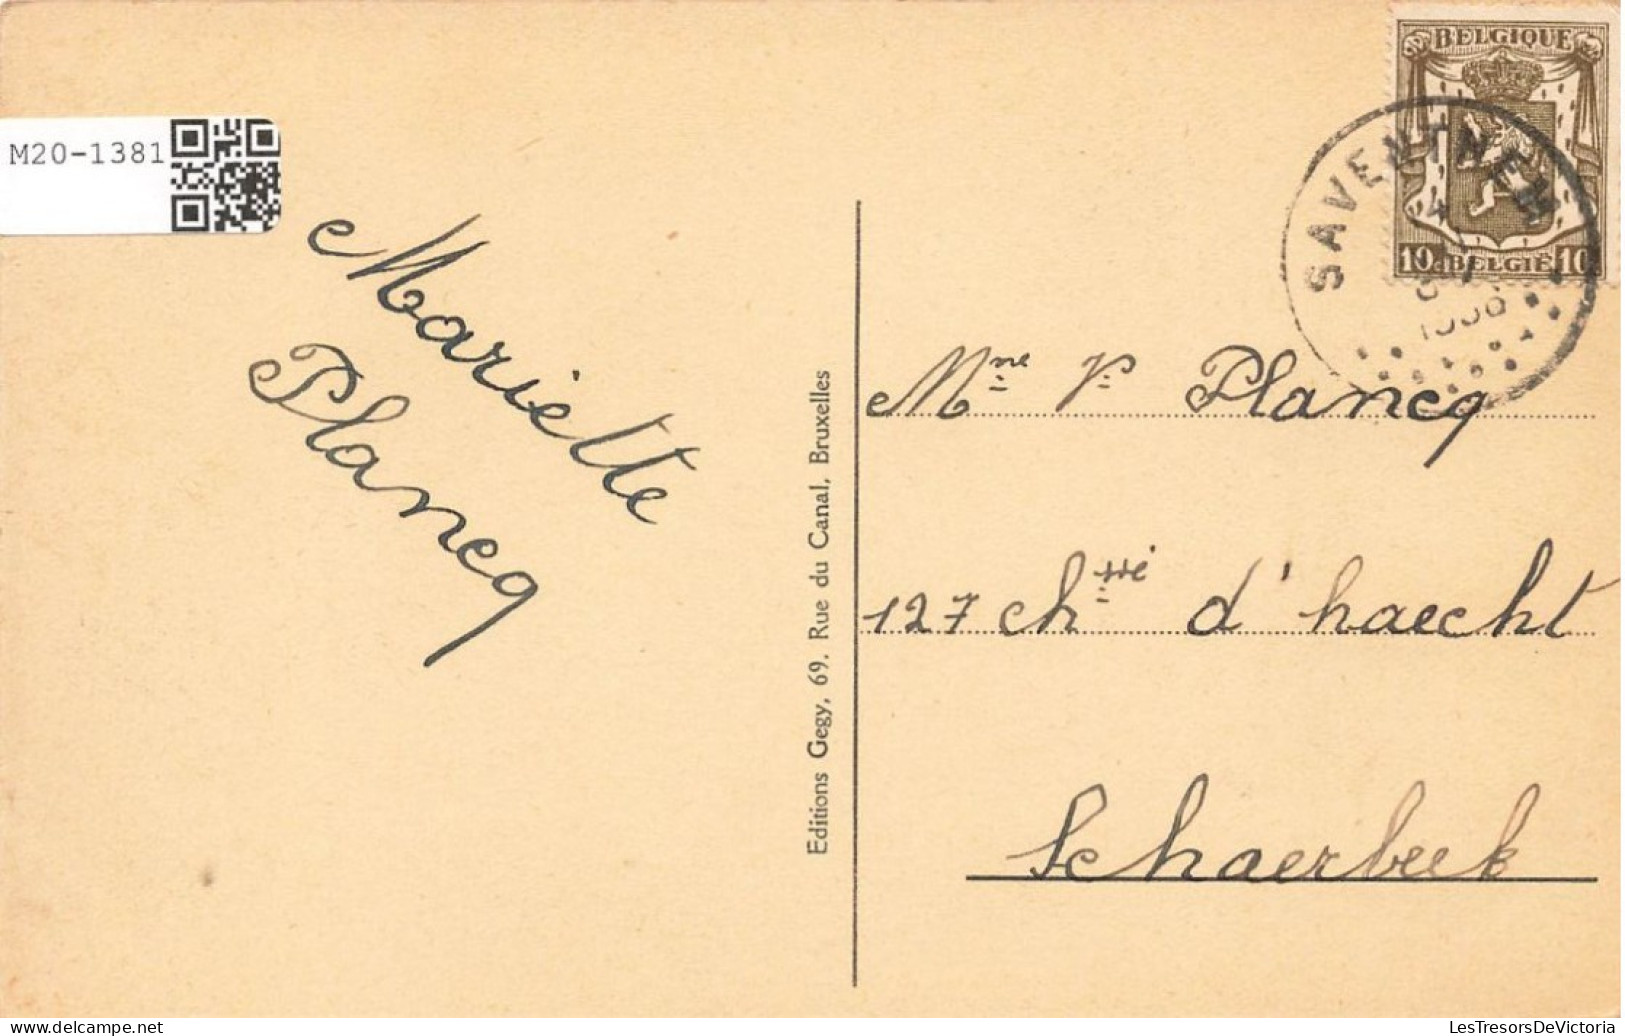 M20-1381
Mariette
Plancq
Editions Gegy, 69. Rue du Canal, Bruxelles
BELGIQUE
10 BELGIË 10
SAVENTHEM
1938
Mme Ve Plancq
127 Chssé d'haecht
Schaerbeek
delcampe.net
LesTresorsDeVictoria